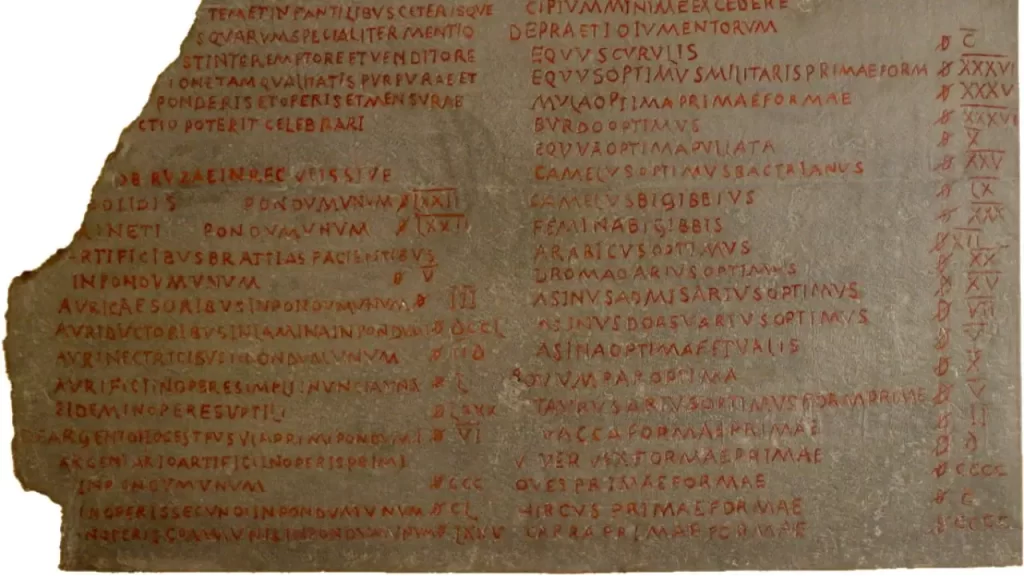 TEMET IN PANTILIBVS CETERISQVE
S QVARVM SPECIALITER MENTIO
ST INTER EMPTORE ET VENDITORE
IONE TAM QVALITATIS PVRPVRAE ET
PONDERIS ET OPERIS ET MENSVRAE
CTIO POTERIT CELEBRARI
OBRVZAE IN REC
SOLIDIS PONDVM VNVM 𐆖 L̅X̅X̅I̅I̅
INETI PONDVM VNVM 𐆖 L̅X̅X̅I̅I̅
ARTIFICIBVS BRATTIAS FACIENTIBVS
IN PONDVM VNVM 𐆖 V̅
AVRI CAESORIBVS IN PONDVM VNVM 𐆖 I̅I̅I̅
AVRI DVCTORIBVS IN LAMINA IN PONDVM 𐆖 DCCL
AVRI NECTRICIBVS IN PONDVM VNVM 𐆖
AVRIFICI IN OPERE SIMPLI IN VNCIAM VNA 𐆖 L
EIDEM IN OPERE SVPTILI 𐆖 LXXX
DE ARGENTO HOC EST PVSVLA PRIMI PONDVM I 𐆖 V̅I̅
ARGENTARIO ARTIFICI IN OPERIS PRIMI
IN PONDVM VNVM 𐆖 CCC
IN OPERIS SECVNDI IN PONDVM VNVM 𐆖 CL
IN OPERIS COMMVNIS IN PONDVM VNVM 𐆖 LXXV
CIPIVM MINIME EXCEDERE
DE PRAETIO IVMENTORVM
EQVVS CVRVLIS 𐆖 C̅
EQVVS OPTIMVS MILITARIS PRIMAE FORM 𐆖 X̅X̅X̅V̅I̅
MVLA OPTIMA PRIMAE FORMAE 𐆖 X̅X̅X̅V̅
BVRDO OPTIMVS 𐆖 X̅X̅X̅V̅I̅
EQVVA OPTIMA PVLLATA 𐆖 X̅
CAMELVS OPTIMVS BACTRIANVS 𐆖 X̅X̅V̅
CAMELVS BIGIBBIVS 𐆖 L̅X̅
FEMINA BIGIBBIS 𐆖 X̅X̅X̅
ARABICVS OPTIMVS 𐆖 X̅I̅I̅
DROMADARIVS OPTIMVS 𐆖 X̅X̅
ASINVS ADMISARIVS OPTIMVS 𐆖 X̅V̅
ASINVS DORSVARIVS OPTIMVS 𐆖 V̅I̅I̅
ASINA OPTIMA FETVALIS 𐆖
BOVVM PAR OPTIMA 𐆖 X̅
TAVRVS ARIVS OPTIMVS FORM PRIME 𐆖 V̅
VACCA FORMAE PRIMAE 𐆖 I̅I̅
VERVIX FORMAE PRIMAE 𐆖 D
OVES PRIMAE FORMAE 𐆖 CCCC
HIRCVS PRIMAE FORMAE 𐆖
CAPRA PRIMAE FORMAE 𐆖 CCCC